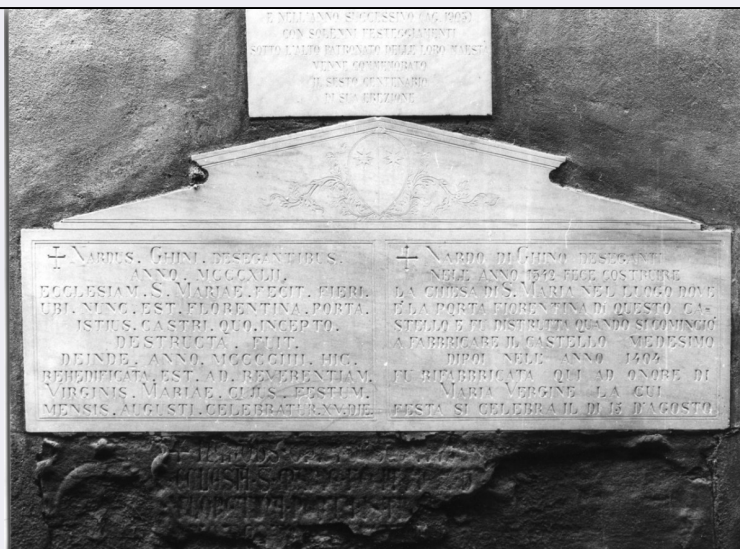 E NELL'ANNO SUCCESSIVO (AG. 1905)
CON SOLENNI FESTEGGIAMENTI
SOTTO L'ALTO PATRONATO DELLE LORO MAESTÀ
VENNE COMMEMORATO
IL SESTO CENTENARIO
DI SUA EREZIONE
NARDUS. GHINI. DESEGANTIBUS.
ANNO. MCCCXLII.
ECCLESIAM. S. MARIAE. FECIT. FIERI.
UBI. NUNC. EST. FLORENTINA. PORTA.
ISTIUS. CASTRI. QUO. INCEPTO.
DESTRUCTA. FUIT.
DEINDE. ANNO. MCCCCIIII. HIC.
REHEDIFICATA. EST. AD. REVERENTIAM.
VIRGINIS. MARIAE. CUIUS. FESTUM.
MENSIS. AUGUSTI. CELEBRATUR. XV. DIE.
NARDO DI GHINO DESEGANTI
NELE ANNO 1342 FECE COSTRUIRE
LA CHIESA DI S. MARIA NEL LUOGO DOVE
È LA PORTA FIORENTINA DI QUESTO CA=
STELLO E FU DISTRUTTA QUANDO SI COMINCIÒ
A FABBRICARE IL CASTELLO MEDESIMO
DIPOI NELE ANNO 1404
FU RIFABBRICATA QUI AD ONORE DI
MARIA VERGINE LA CUI
FESTA SI CELEBRA IL DÌ 15 D'AGOSTO